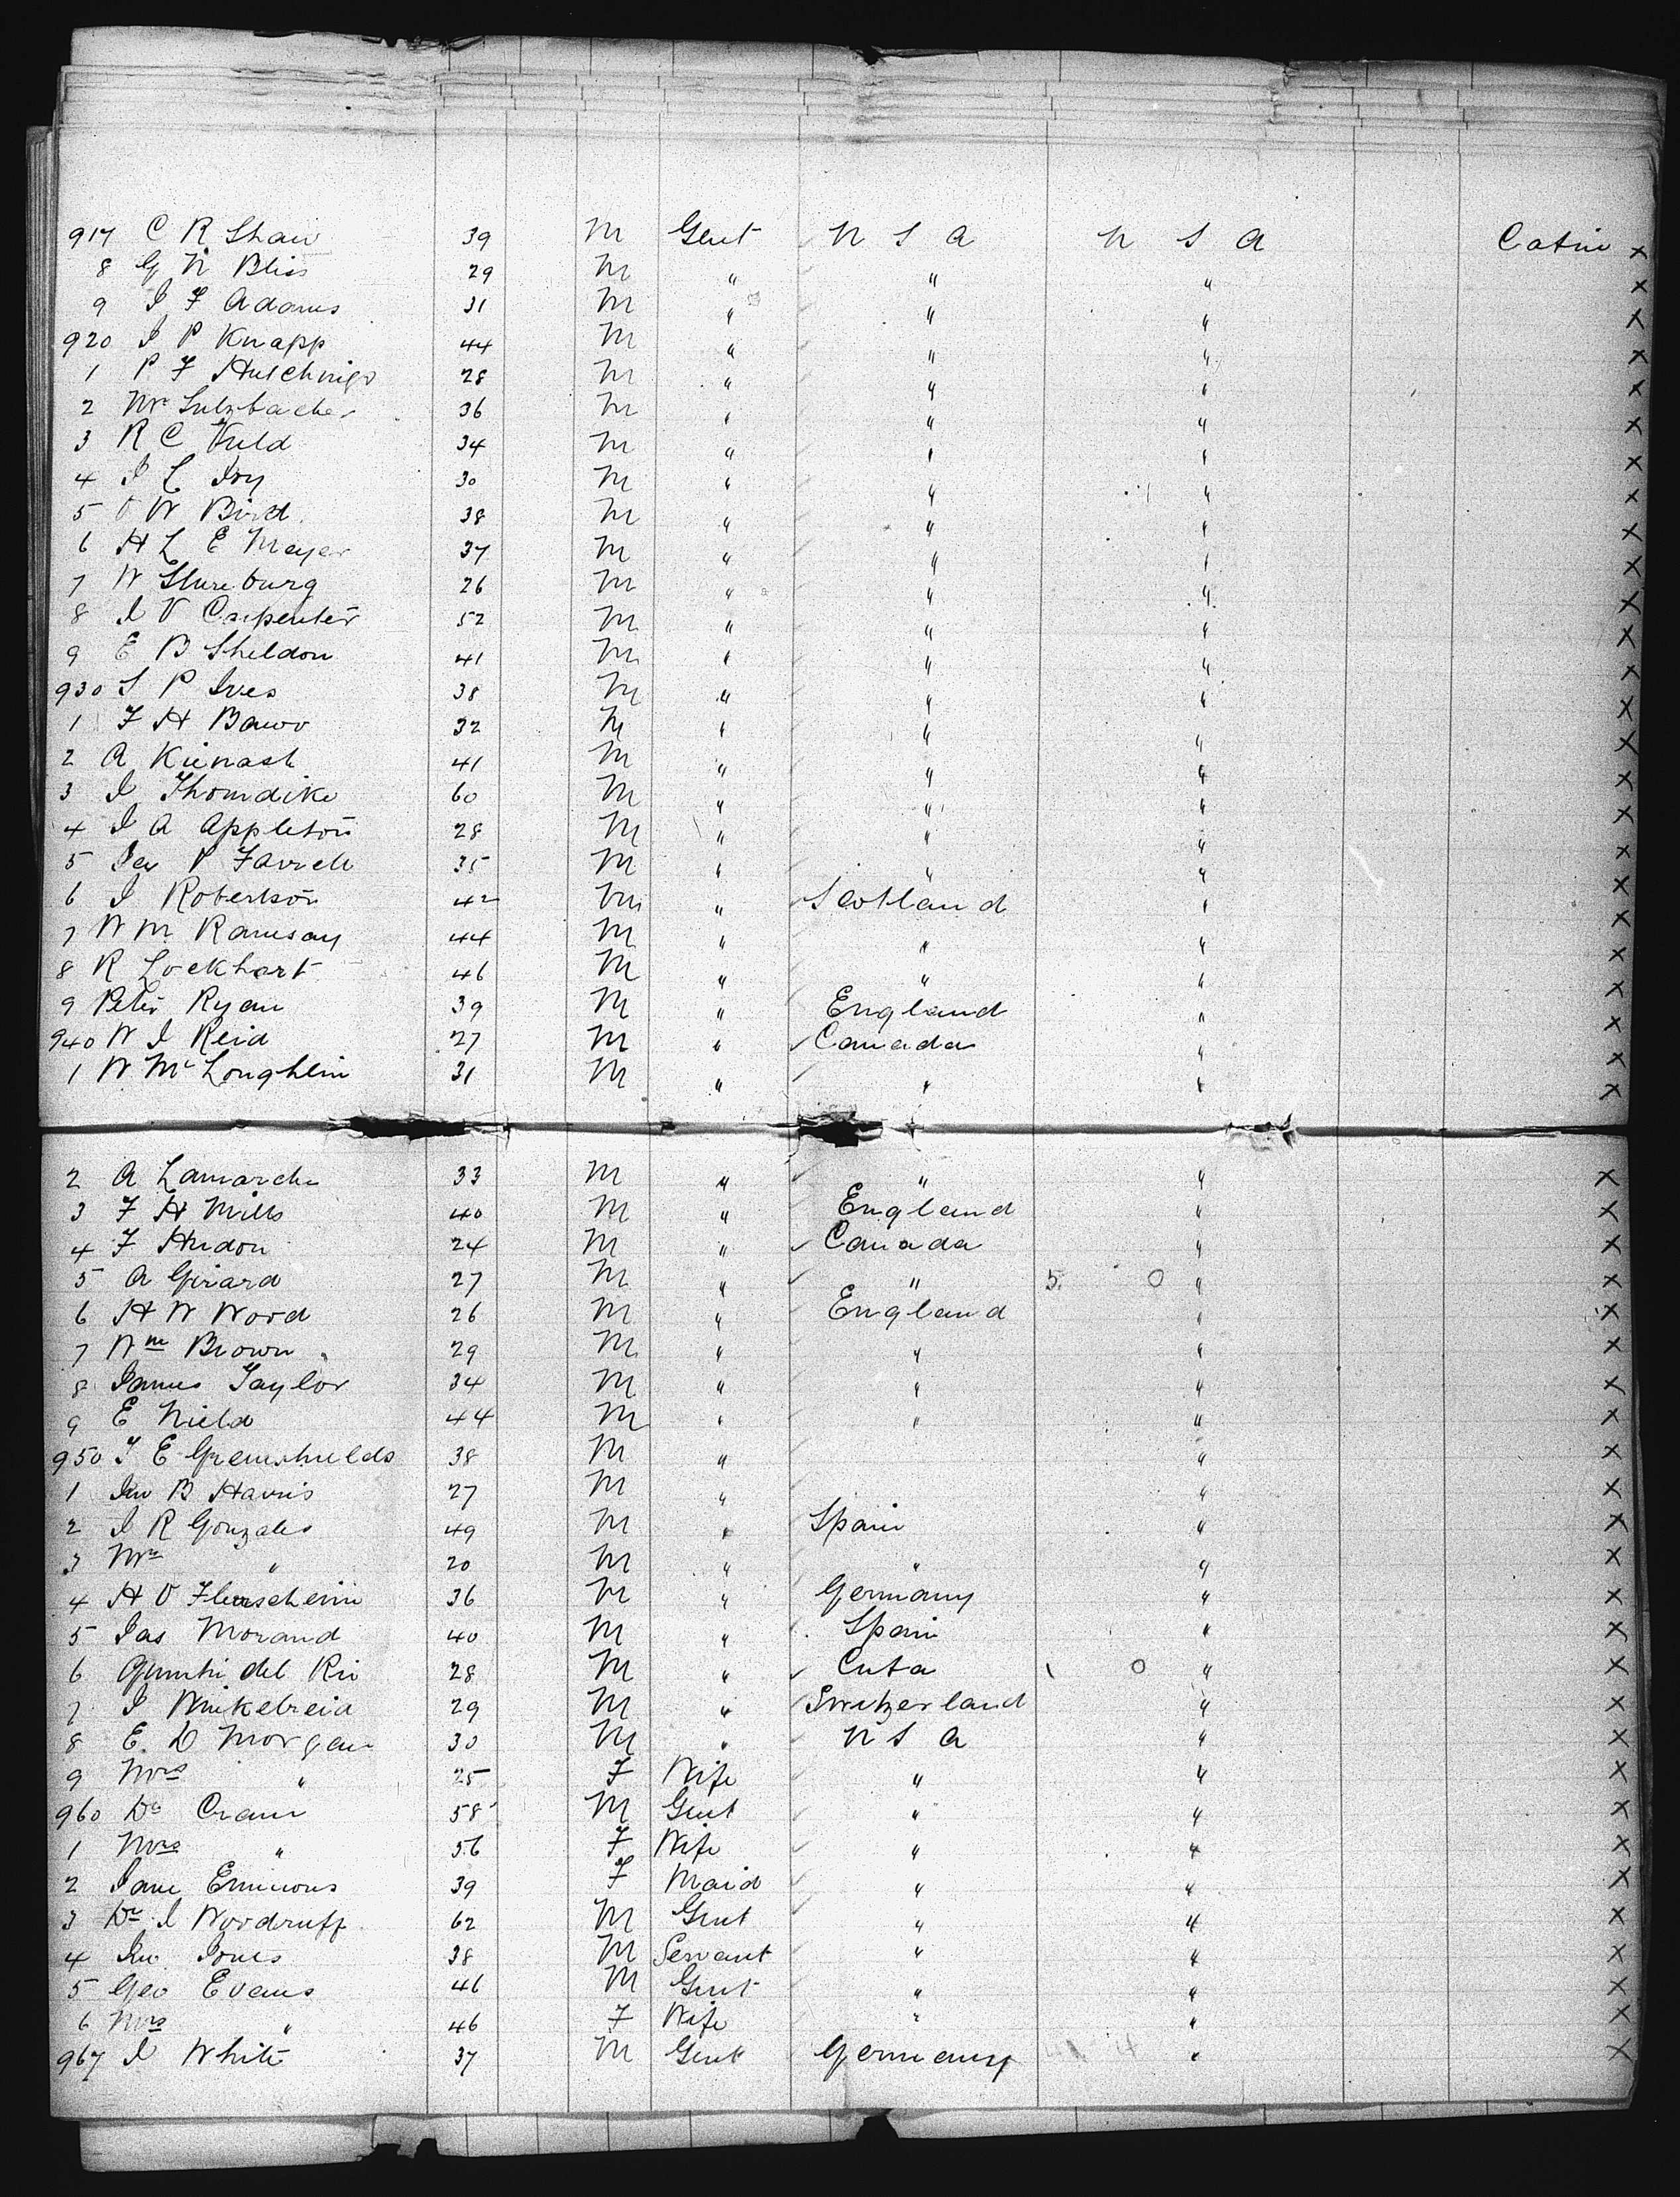 917 C R Shaw 39 M Gent U S A U S A Cabin ×
8 G N Bliss 29 M " " " ×
9 J F Adams 31 M " " " ×
920 J P Knapp 44 M " " " ×
1 P F Hutchings 28 M " " " ×
2 Mr Sulzbacher 36 M " " " ×
3 R C 34 M " " " ×
4 J L Ivy 30 M " " " ×
5 O W Bird 38 M " " " ×
6 H L E Meyer 37 M " " " ×
7 W 26 M " " " ×
8 J V Carpenter 52 M " " " ×
9 E B Sheldon 41 M " " " ×
930 S P Ives 38 M " " " ×
1 F H 32 M " " " ×
2 A Kienast 41 M " " " ×
3 J Thorndike 60 M " " " ×
4 J A Appleton 28 M " " " ×
5 Jas P Farrell 35 M " " " ×
6 J Robertson 42 M " Scotland " ×
7 W M Ramsay 44 M " " " ×
8 R Lockhart 46 M " " " ×
9 Peter Ryan 39 M " England " ×
940 W J Reid 27 M " Canada " ×
1 W McLoughlin 31 M " " " ×
2 A Lamarche 33 M " " " ×
3 F H Mills 40 M " England " ×
4 F Hudon 24 M " Canada " ×
5 A Girard 27 M " " 5 0 " ×
6 H W Wood 26 M " England " ×
7 Wm Brown 29 M " " " ×
8 James Taylor 34 M " " " ×
9 E Nield 44 M " " " ×
950 J E Greenshields 38 M " " ×
1 Jno B Harris 27 M " " ×
2 J R Gonzales 49 M " Spain " ×
3 Mr " 20 M " " " ×
4 H O Flerscheim 36 M " Germany " ×
5 Jas Morand 40 M " Spain " ×
6 del Rio 28 M " Cuba 0 " ×
7 J 29 M " Switzerland " ×
8 E. D Morgan 30 M " U S A " ×
9 Mrs " 25 F Wife " " ×
960 Dr Crane 58 M Gent " " ×
1 Mrs " 56 F Wife " " ×
2 Jane Emmons 39 F Maid " " ×
3 Dr J Woodruff 62 M Gent " " ×
4 Jno. Jones 38 M Servant " " ×
5 Geo Evans 46 M Gent " " ×
6 Mrs " 46 F Wife " " ×
967 J White 37 M Gent Germany " ×